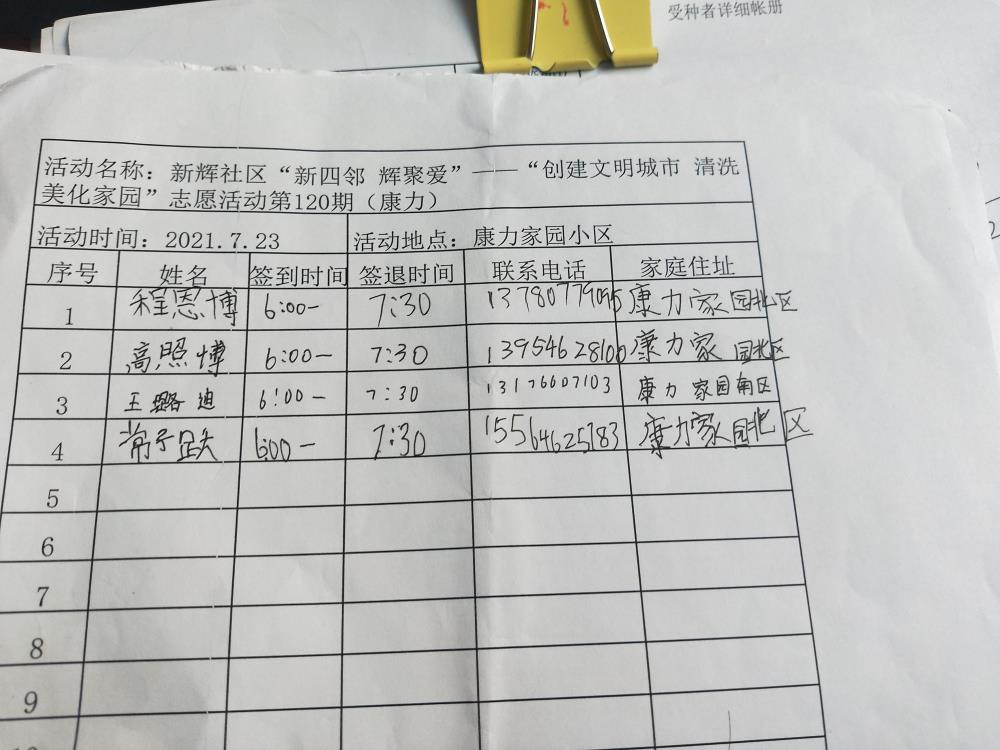 受种者详细帐册
活动名称：新辉社区“新四邻 辉聚爱”——“创建文明城市 清洗
美化家园”志愿活动第120期（康力）
活动时间：2021.7.23 活动地点：康力家园小区
序号 姓名 签到时间 签退时间 联系电话 家庭住址
1 程恩博 6:00- 7:30 康力家园北区
2 高照博 6:00- 7:30 13954628100 康力家园北区
3 王璐迪 6:00- 7:30 13176607103 康力家园南区
4 常子跃 6:00- 7:30 15564625783 康力家园北区
5
6
7
8
9